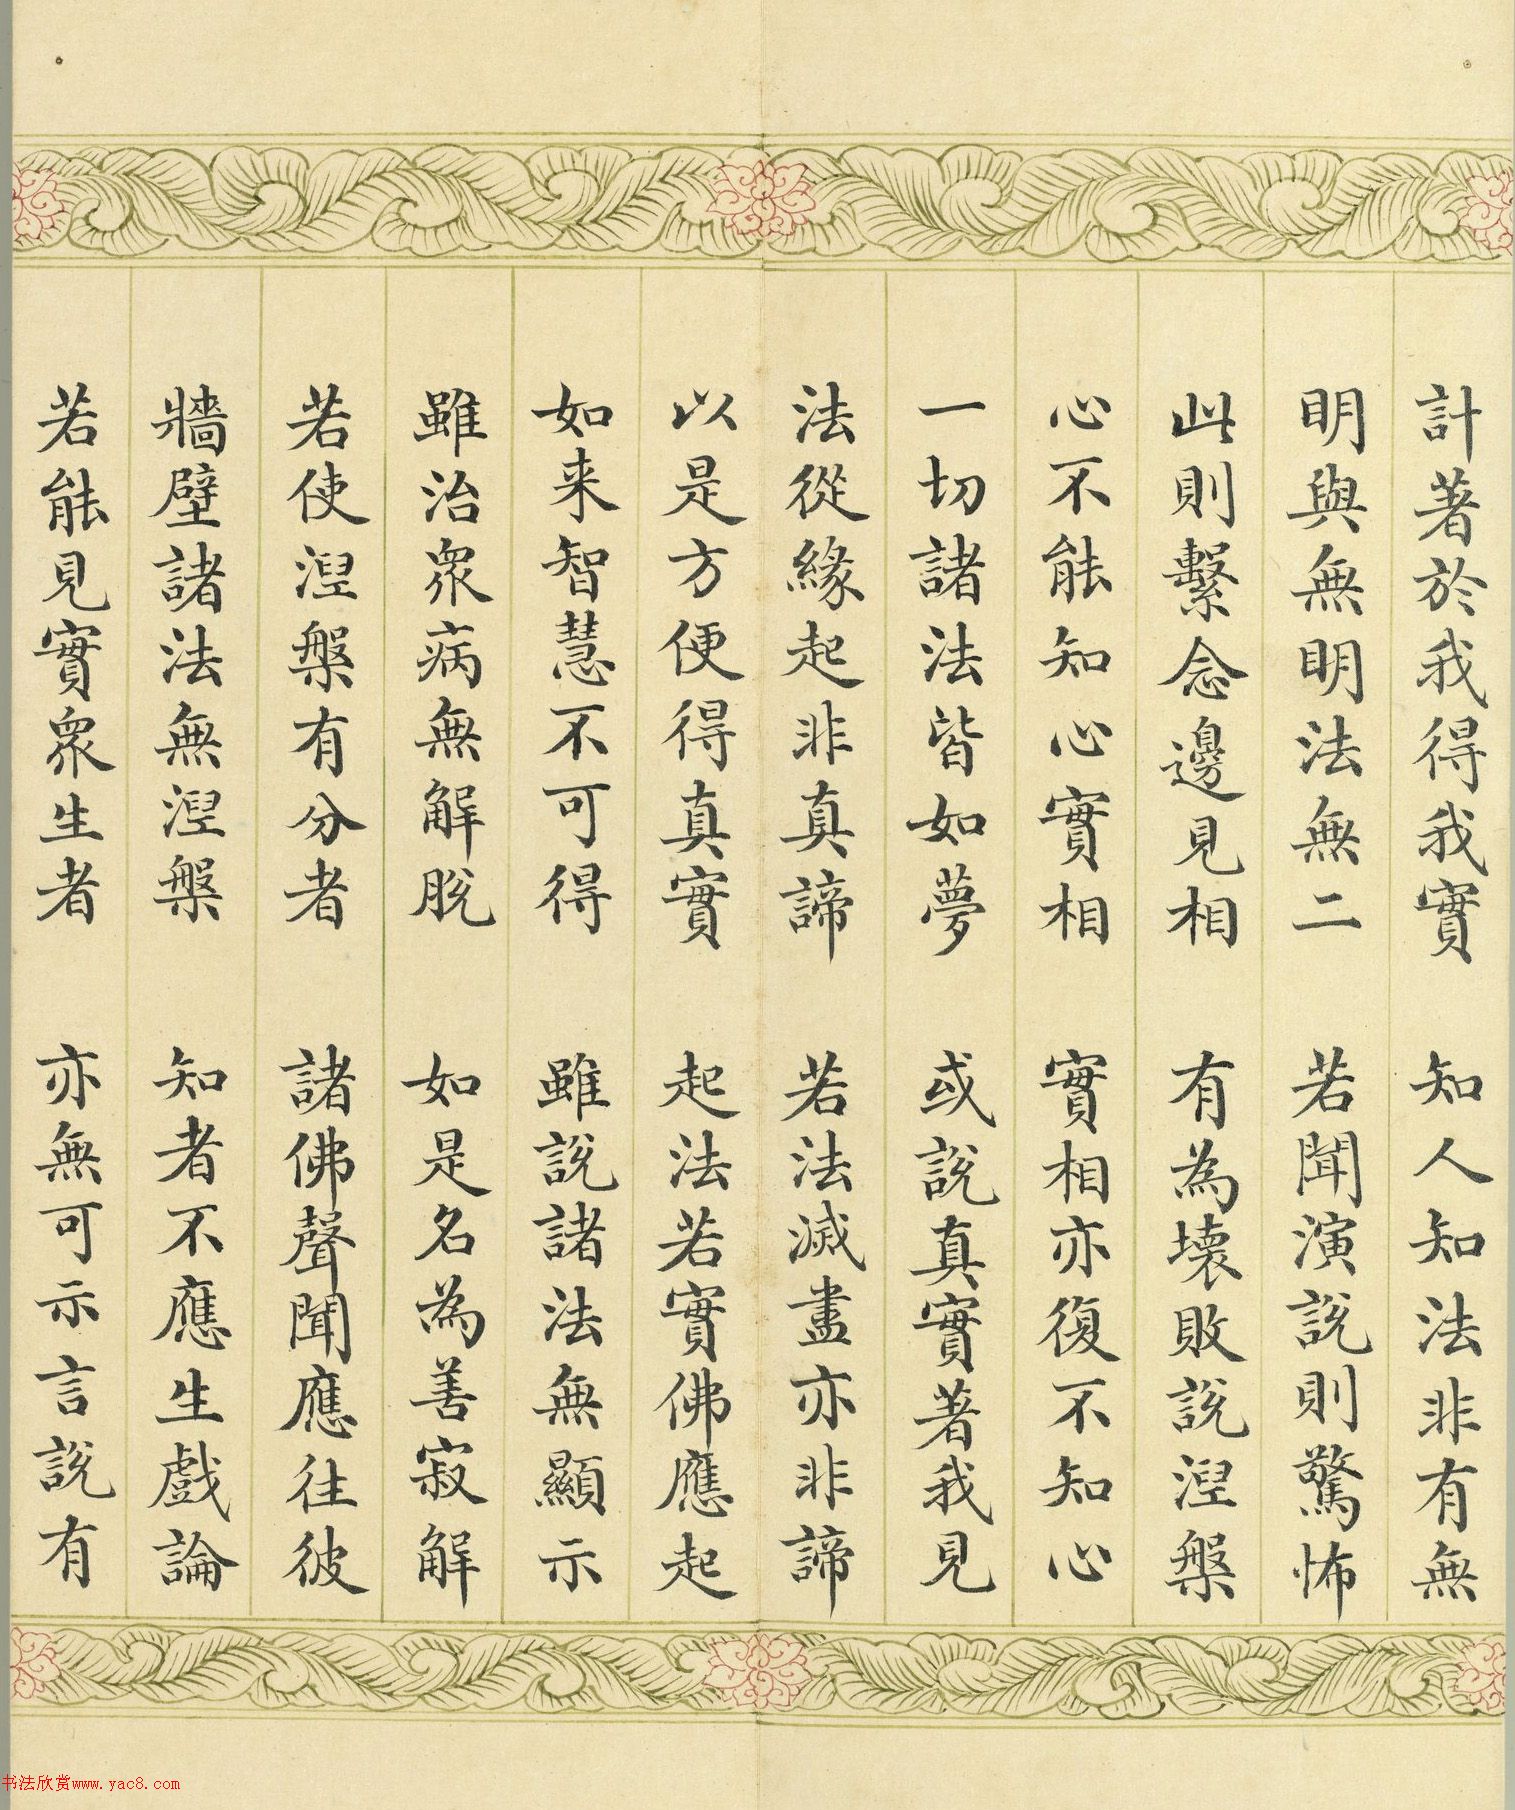 計著於我得我實　知人知法非有無
明與無明法無二　若聞演說則驚怖
此則繫念邊見相　有為壞敗說涅槃
心不能知心實相　實相亦復不知心
一切諸法皆如夢　或說真實著我見
法從緣起非真諦　若法滅盡亦非諦
以是方便得真實　起法若實佛應起
如来智慧不可得　雖說諸法無顯示
雖治眾病無解脫　如是名為善寂解
若使涅槃有分者　諸佛聲聞應往彼
牆壁諸法無涅槃　知者不應生戲論
若能見實眾生者　亦無可示言說有
书法欣赏www.yac8.com